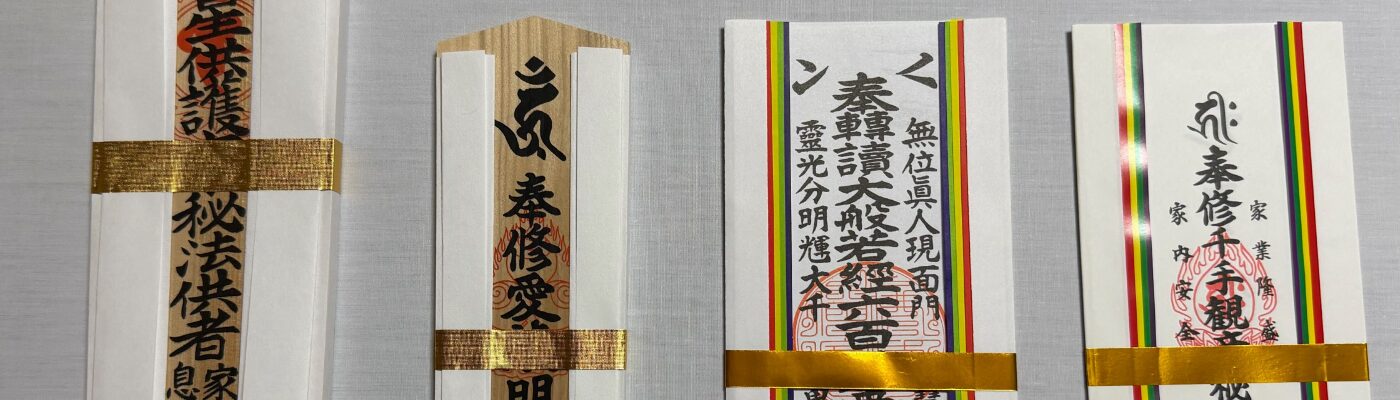 生供護
秘法供者
家
息
奉修愛
明
無位眞人現面門
奉轉讀大般若經六百
靈光分明輝大千
家業隆盛
奉修千手観音秘
家内安全